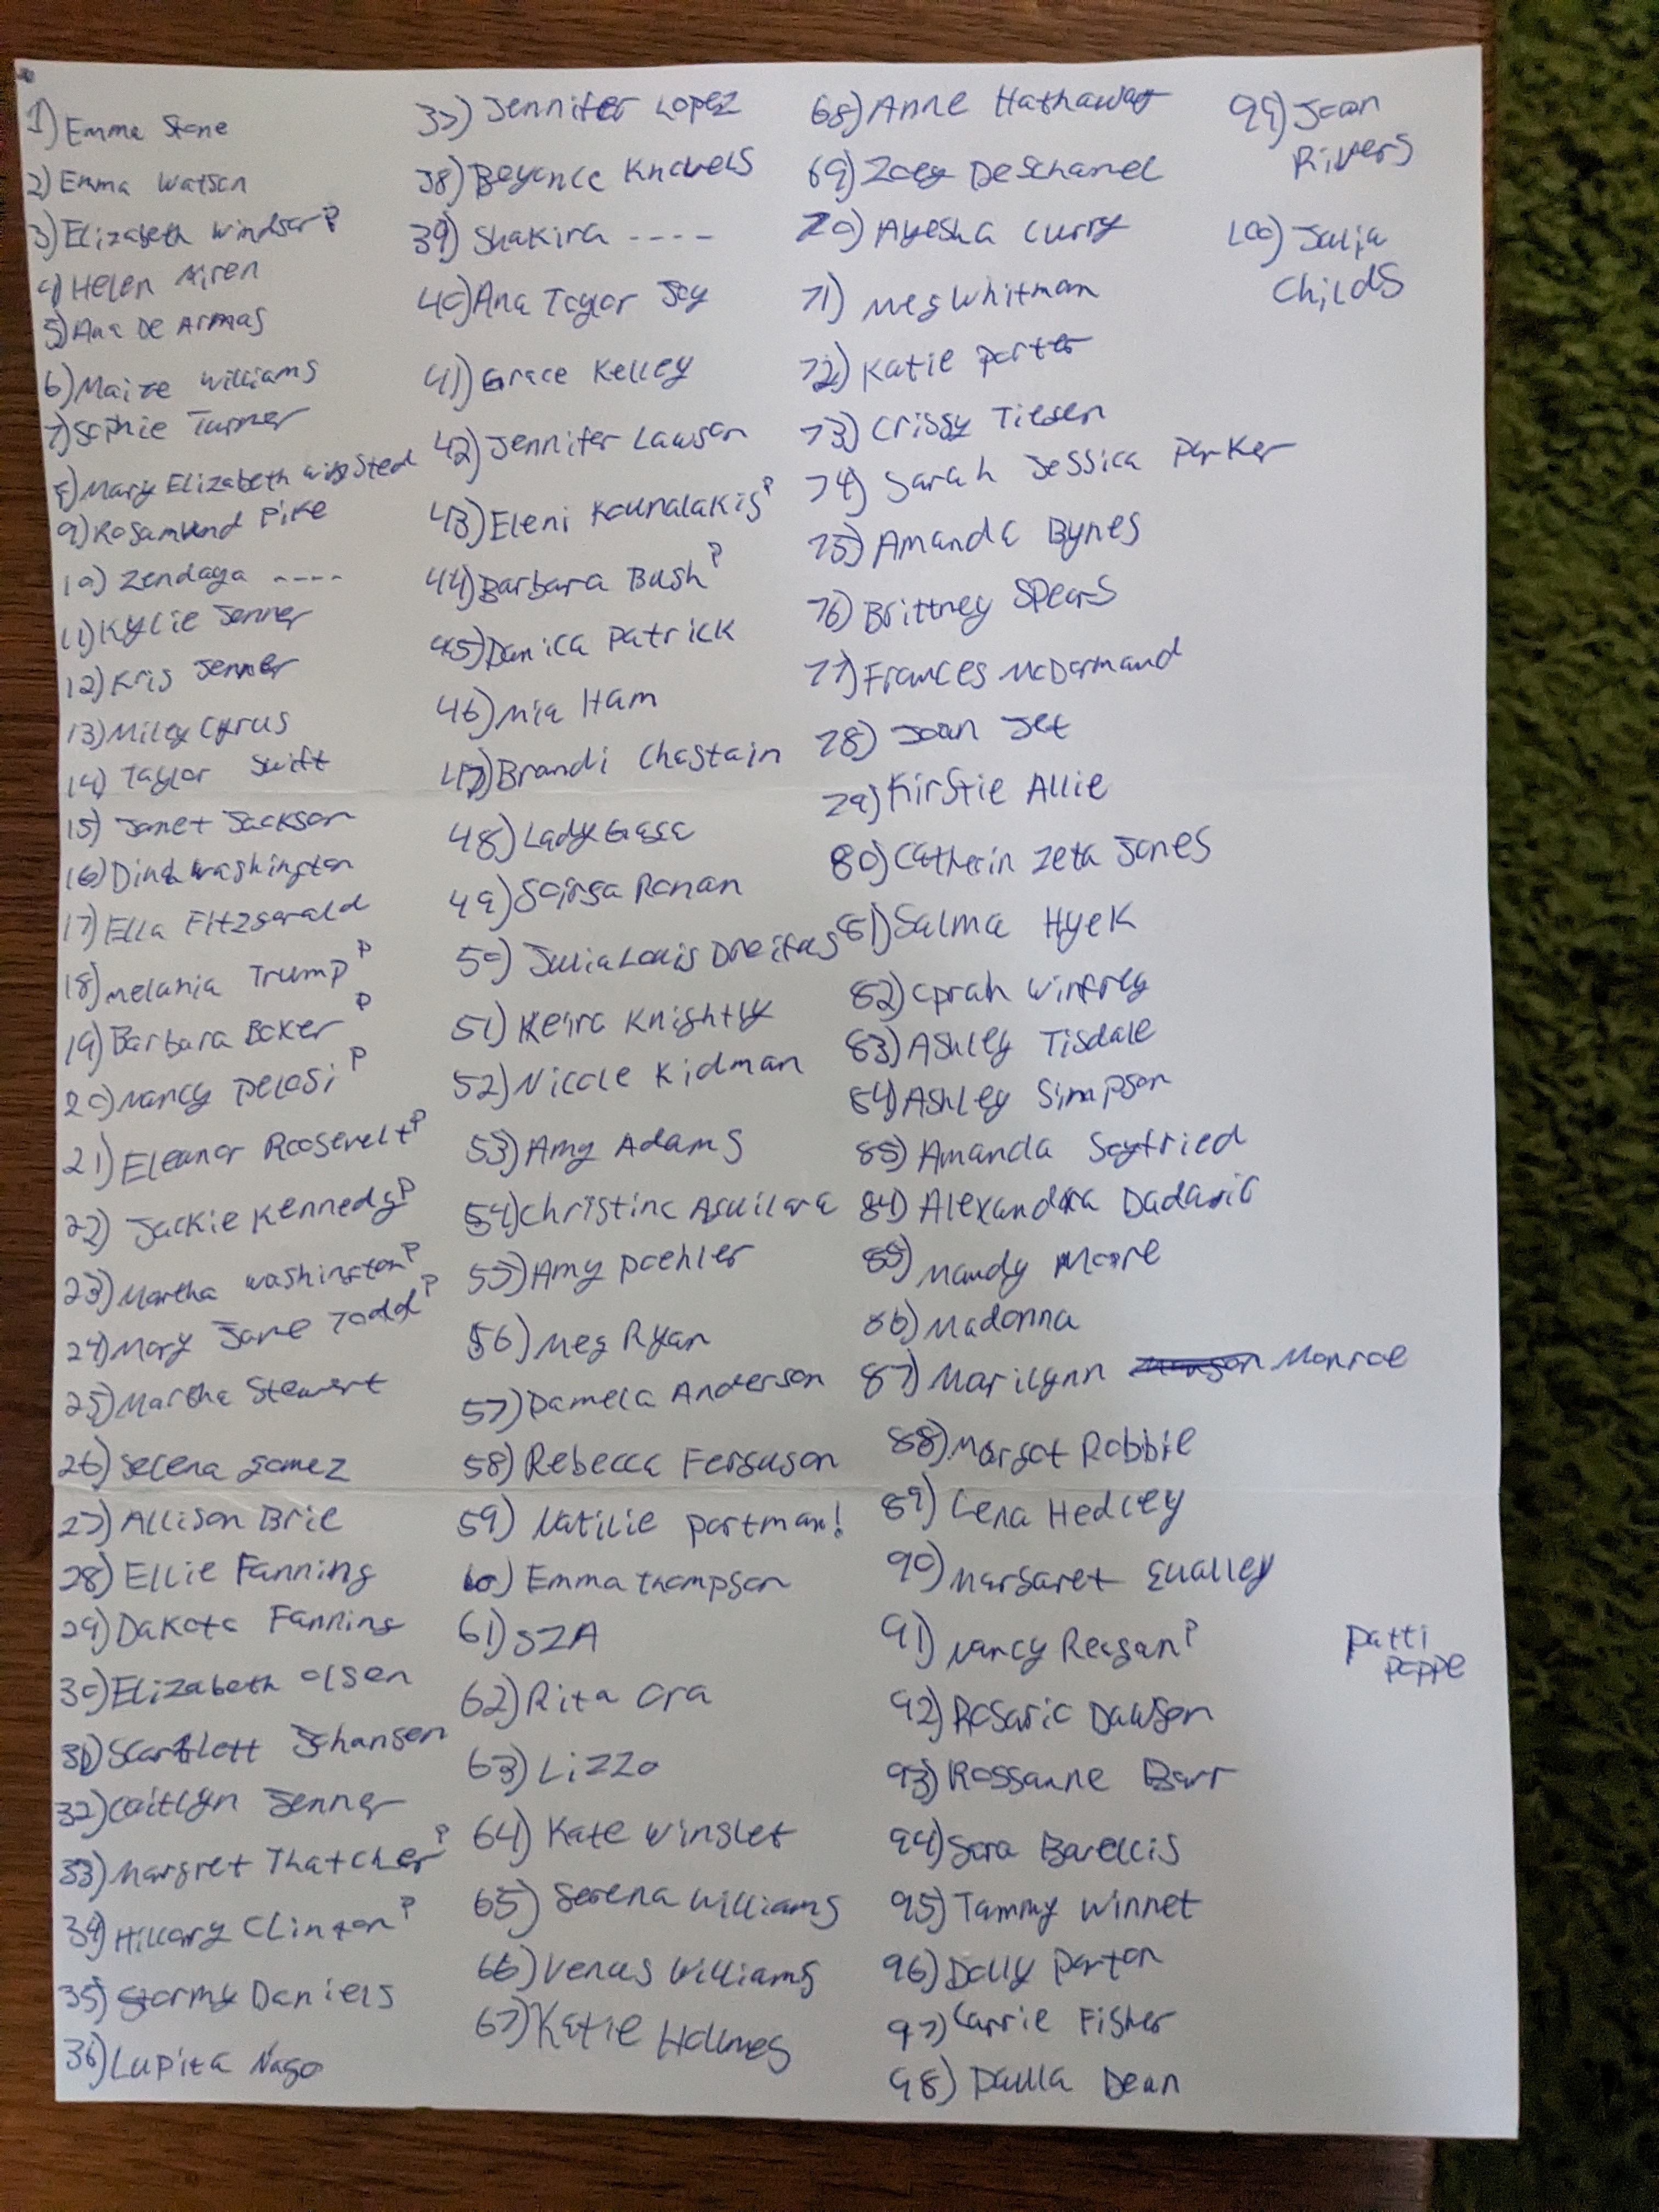 1) Emma Stone
2) Emma Watson
3) Elizabeth Windsor P
4) Helen Miren
5) Ana De Armas
6) Maize Williams
7) Sophie Turner
8) Mary Elizabeth Winsted
9) Rosamund Pike
10) Zendaya ----
11) Kylie Jenner
12) Kris Jenner
13) Miley Cyrus
14) Taylor Swift
15) Janet Jackson
16) Dinah Washington
17) Ella Fitzgerald
18) Melania Trump P
19) Barbara Boxer P
20) Nancy Pelosi P
21) Eleanor Roosevelt P
22) Jackie Kennedy P
23) Martha Washington P
24) Mary Jane Todd P
25) Martha Stewert
26) Selena Gomez
27) Allison Brie
28) Ellie Fanning
29) Dakota Fanning
30) Elizabeth Olsen
31) Scarlett Johansen
32) Caitlyn Jenner
33) Margret Thatcher P
34) Hillary Clinton P
35) Stormy Daniels
36) Lupita Nago
37) Jennifer Lopez
38) Beyonce Knowels
39) Shakira ----
40) Ana Taylor Joy
41) Grace Kelley
42) Jennifer Lawson
43) Eleni Kounalakis P
44) Barbara Bush P
45) Danica Patrick
46) Mia Ham
47) Brandi Chastain
48) Lady Gaga
49) Soirsa Ronan
50) Julia Louis Dreifus
51) Keira Knightly
52) Nicole Kidman
53) Amy Adams
54) Christina Aguilara
55) Amy Poehler
56) Meg Ryan
57) Pamela Anderson
58) Rebecca Ferguson
59) Natilie Portman!
60) Emma Thompson
61) SZA
62) Rita Ora
63) Lizzo
64) Kate Winslet
65) Serena Williams
66) Venus Williams
67) Katie Hollmes
68) Anne Hathaway
69) Zoey Deschanel
70) Ayesha Curry
71) Meg Whitman
72) Katie Porter
73) Crissy Tiegen
74) Sarah Jessica Parker
75) Amanda Bynes
76) Brittney Spears
77) Frances McDormand
78) Joan Jet
79) Kirstie Allie
80) Catherin Zeta Jones
81) Salma Hyek
82) Oprah Winfrey
83) Ashley Tisdale
84) Ashley Simpson
85) Amanda Seyfried
84) Alexandra Dadario
85) Mandy Moore
86) Madonna
87) Marilynn Manson Monroe
88) Margot Robbie
89) Lena Hedley
90) Margaret Qualley
91) Nancy Reagan P
92) Rosario Dawson
93) Rossanne Barr
94) Sara Barellis
95) Tammy Winnet
96) Dolly Parton
97) Carrie Fisher
98) Paulla Dean
99) Joan
Rivers
100) Julia
Childs
Patti
Poppe